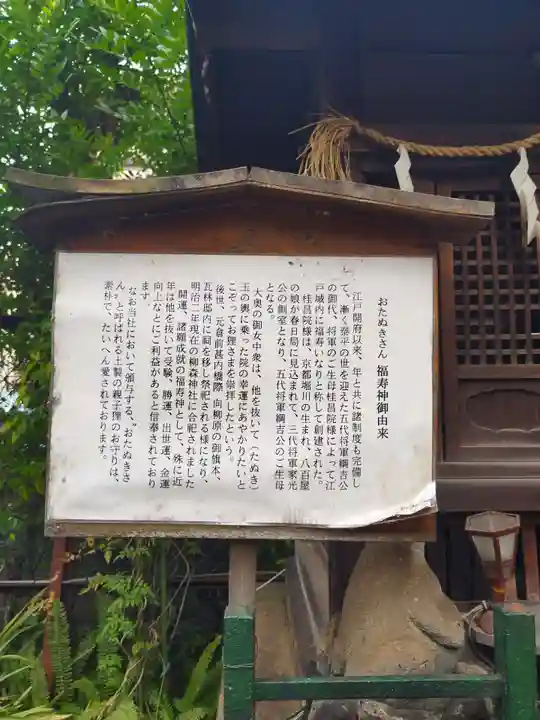 おたぬきさん 福寿神御由来
江戸開府以来、年と共に諸制度も完備し
て、漸く泰平の世を迎えた五代将軍綱吉公
の御代、将軍のご生母桂昌院様によって江
戸城内に福寿いなりと称して創建された。
桂昌院様は、京都堀川の生まれ、八百屋
の娘が春日局に見込まれて、三代将軍家光
公の側室となり、五代将軍綱吉公のご生母
となる。
大奥の御女中衆は、他を抜いて(たぬき)
玉の輿に乗った院の幸運にあやかりたいと
こぞってお狸さまを崇拝したという。
後世、元倉前甚内橋際 向柳原の御旗本、
瓦林邸内に祠を移し祭祀される様になり、
明治二年現在の柳森神社に合祀されました
開運、諸願成就の福寿神として、殊に近
年は他を抜いて受験、勝運、出世運、金運
向上などにご利益があると信奉されており
ます
なお当社において頒与する、〝おたぬきさ
ん〟と呼ばれる土製の親子狸のお守りは、
素朴で、たいへん愛されております。